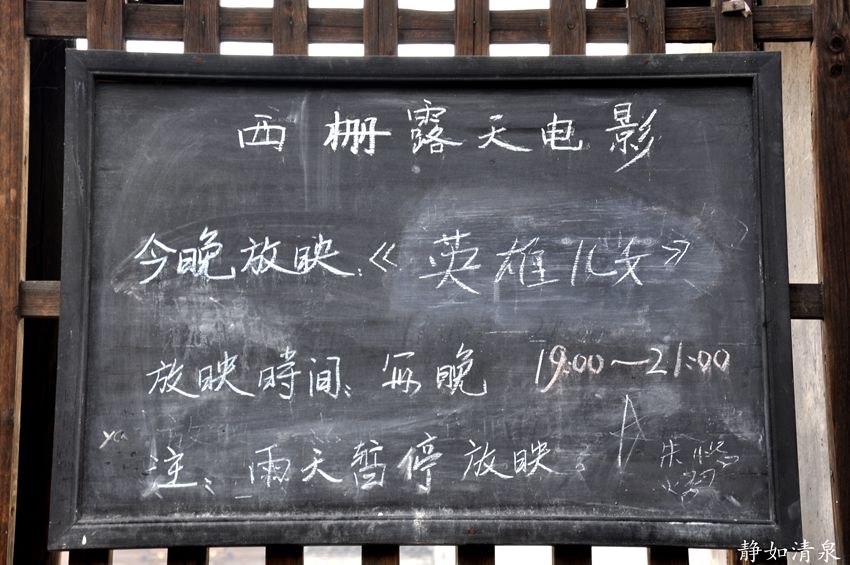 西栅露天电影
今晚放映：《英雄儿女》
放映時间：每晚 19:00~21:00
ya
注：雨天暂停放映。
A
静如清泉